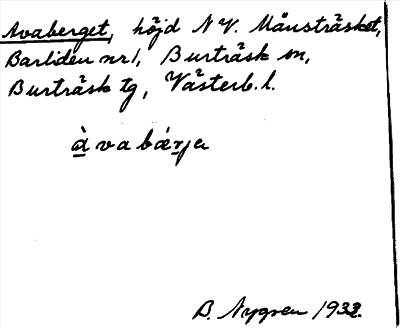 Avaberget, höjd N V. Månsträsket,
Barliden nr 1, Burträsk sn,
Burträsk tg, Västerb. l.
à va bǽrja
B. Nygren 1932.